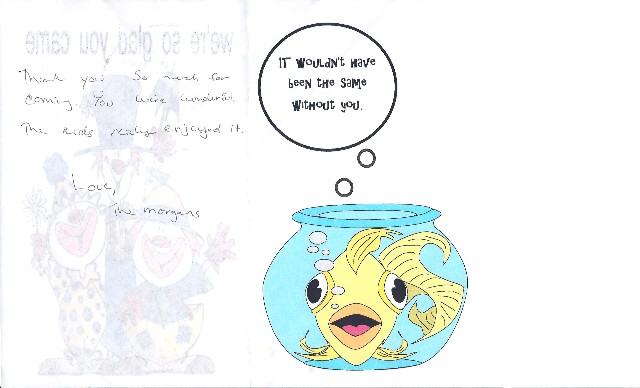 we're so glad you came
Thank you So much for
coming. You were wonderful.
The kids really enjoyed it.
Love,
The morgans
IT WOULDN'T HAVE
BEEN THE SAME
WITHOUT YOU.